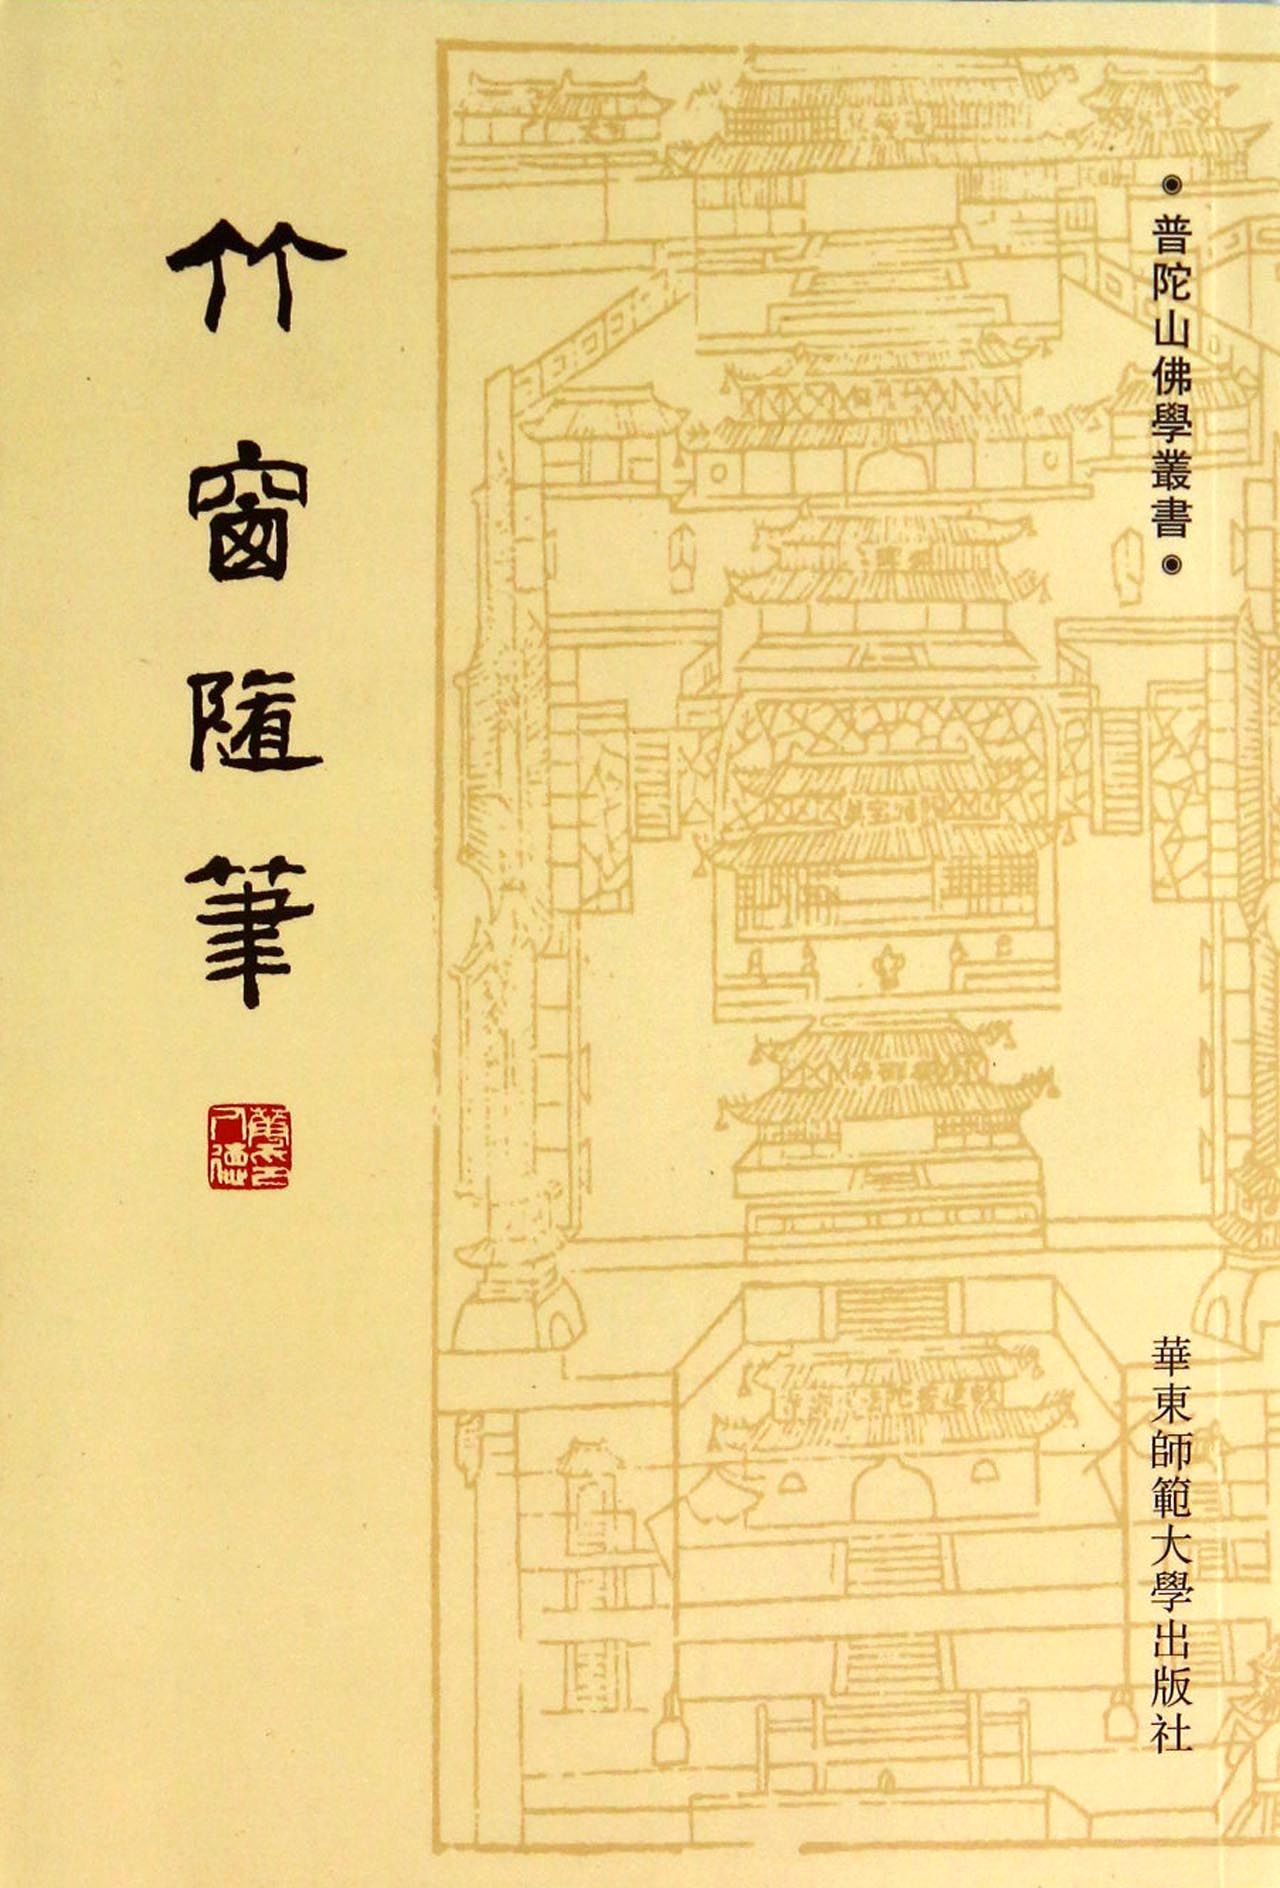 ● 普陀山佛學叢書 ●
竹窗隨筆
華東師範大學出版社